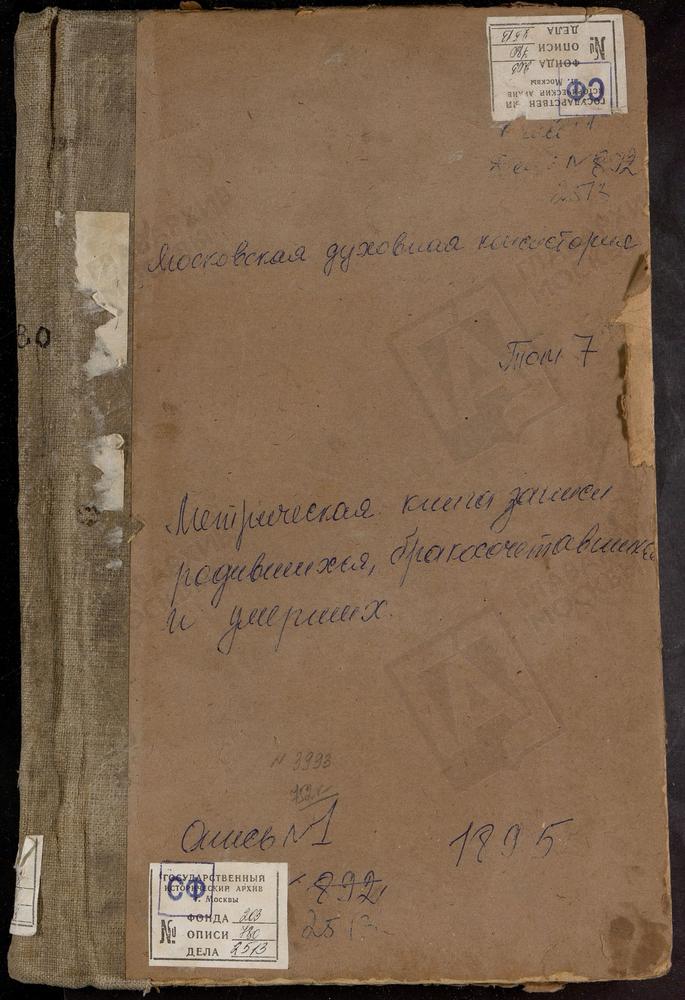 ГОСУДАРСТВЕННЫЙ
ИСТОРИЧЕСКИЙ АРХИВ
г. Москвы
СФ
№
ФОНДА 203
ОПИСИ 780
ДЕЛА 2513
№ 892
2513
Московская духовная консистория
80
Том 7
Метрическая книга записи
родившихся, бракосочетавшихся
и умерших.
N 3993
Опись N 1
1895
892
2513
ГОСУДАРСТВЕННЫЙ
ИСТОРИЧЕСКИЙ АРХИВ
г. Москвы
СФ
№
ФОНДА 203
ОПИСИ 780
ДЕЛА 2513